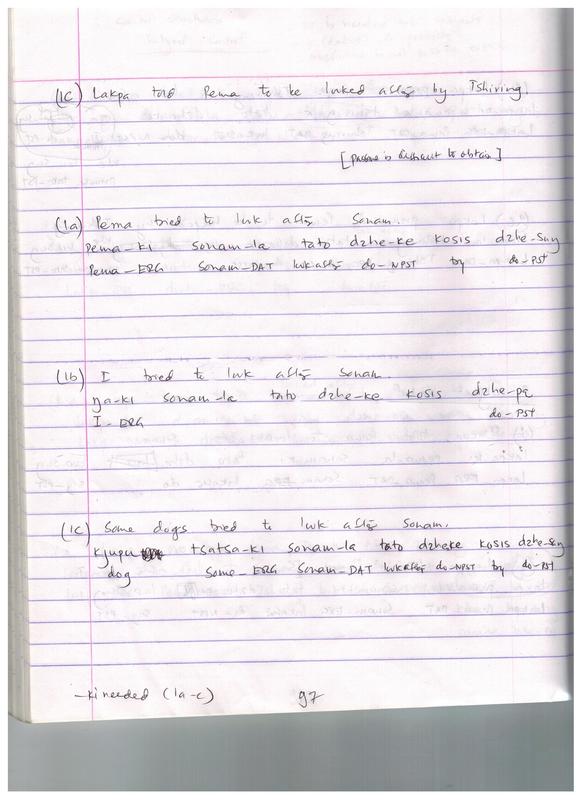 (1c) Lakpa told Pema to be looked after by Tshiring.
[passive is difficult to obtain]
(1a) Pema tried to look after Sonam.
Pema-ki sonam-la tato dzhe-ke kosis dzhe-suŋ
Pema-ERG Sonam-DAT look after do-NPST try do-PST
(1b) I tried to look after Sonam.
ŋa-ki sonam-la tato dzhe-ke kosis dzhe-pę
I-ERG do-PST
(1c) Some dogs tried to look after Sonam.
kjupu tsatsa-ki sonam-la tato dzheke kosis dzhe-suŋ
dog Some-ERG Sonam-DAT look after do-NPST try do-PST
-ki needed (1a-c) 97